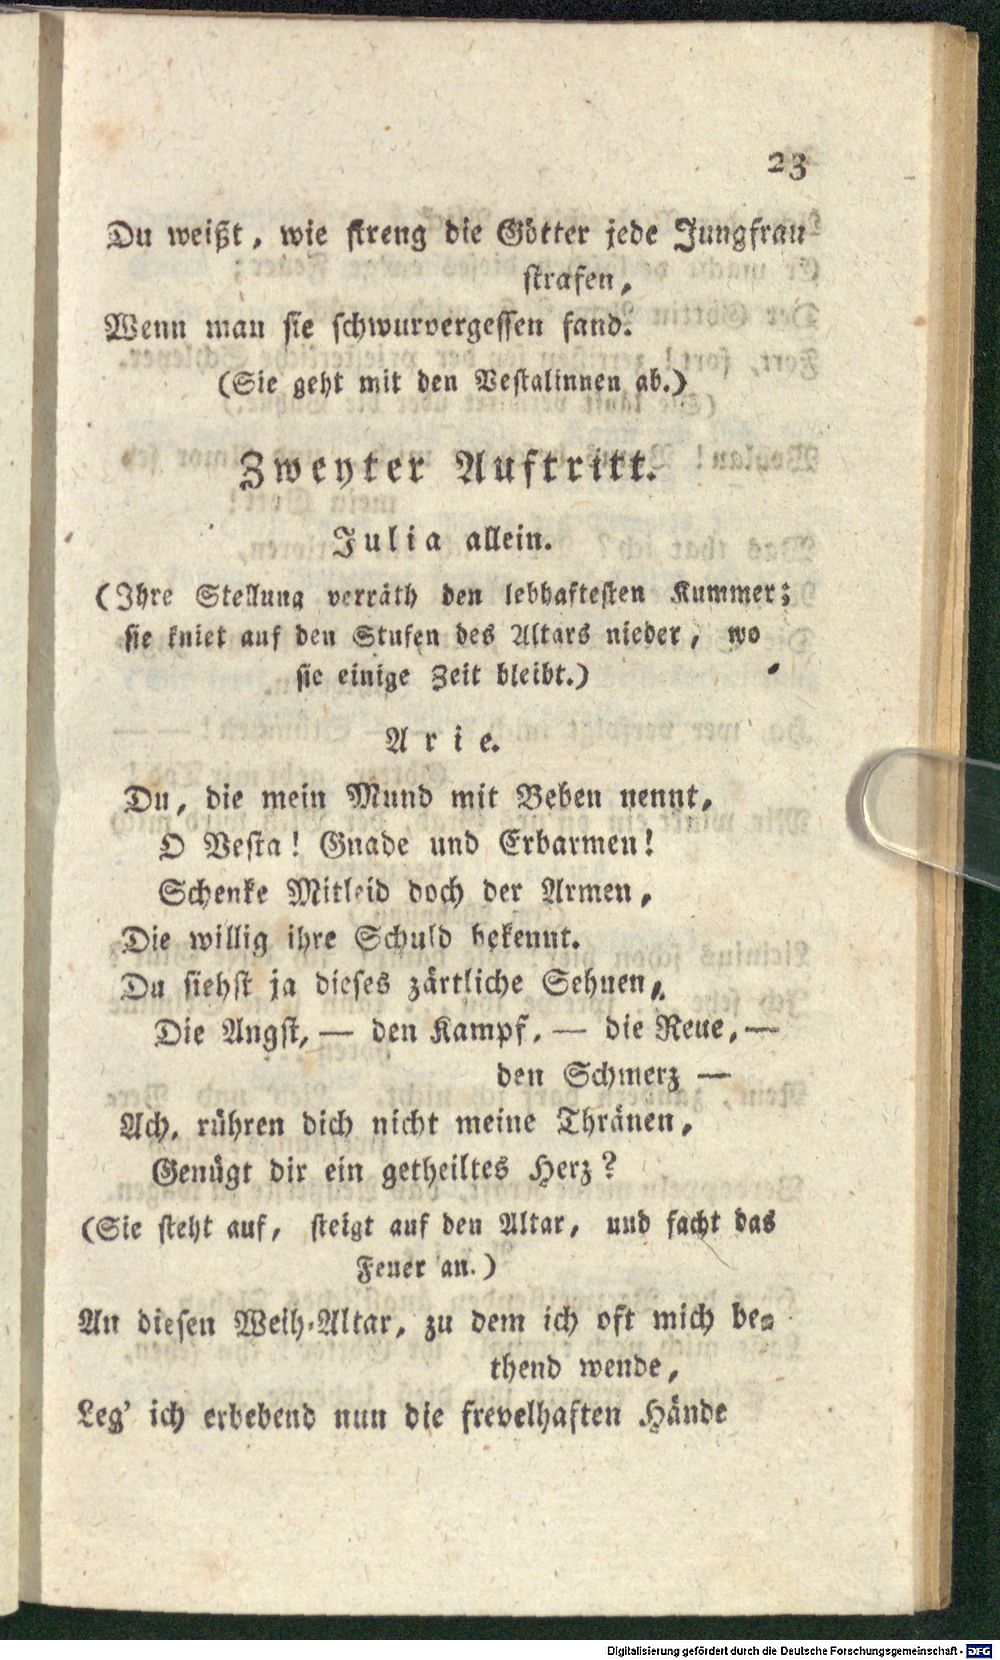 23
Du weißt, wie streng die Götter jede Jungfrau
strafen,
Wenn man sie schwurvergessen fand.
(Sie geht mit den Vestalinnen ab.)
Zweyter Auftritt.
Julia allein.
(Ihre Stellung verräth den lebhaftesten Kummer;
sie kniet auf den Stufen des Altars nieder, wo
sie einige Zeit bleibt.)
Arie.
Du, die mein Mund mit Beben nennt,
O Vesta! Gnade und Erbarmen!
Schenke Mitleid doch der Armen,
Die willig ihre Schuld bekennt.
Du siehst ja dieses zärtliche Sehnen,
Die Angst, — den Kampf, — die Reue, —
den Schmerz —
Ach, rühren dich nicht meine Thränen,
Genügt dir ein getheiltes Herz?
(Sie steht auf, steigt auf den Altar, und facht das
Feuer an.)
An diesen Weih-Altar, zu dem ich oft mich be-
thend wende,
Leg' ich erbebend nun die frevelhaften Hände
Digitalisierung gefördert durch die Deutsche Forschungsgemeinschaft - DFG